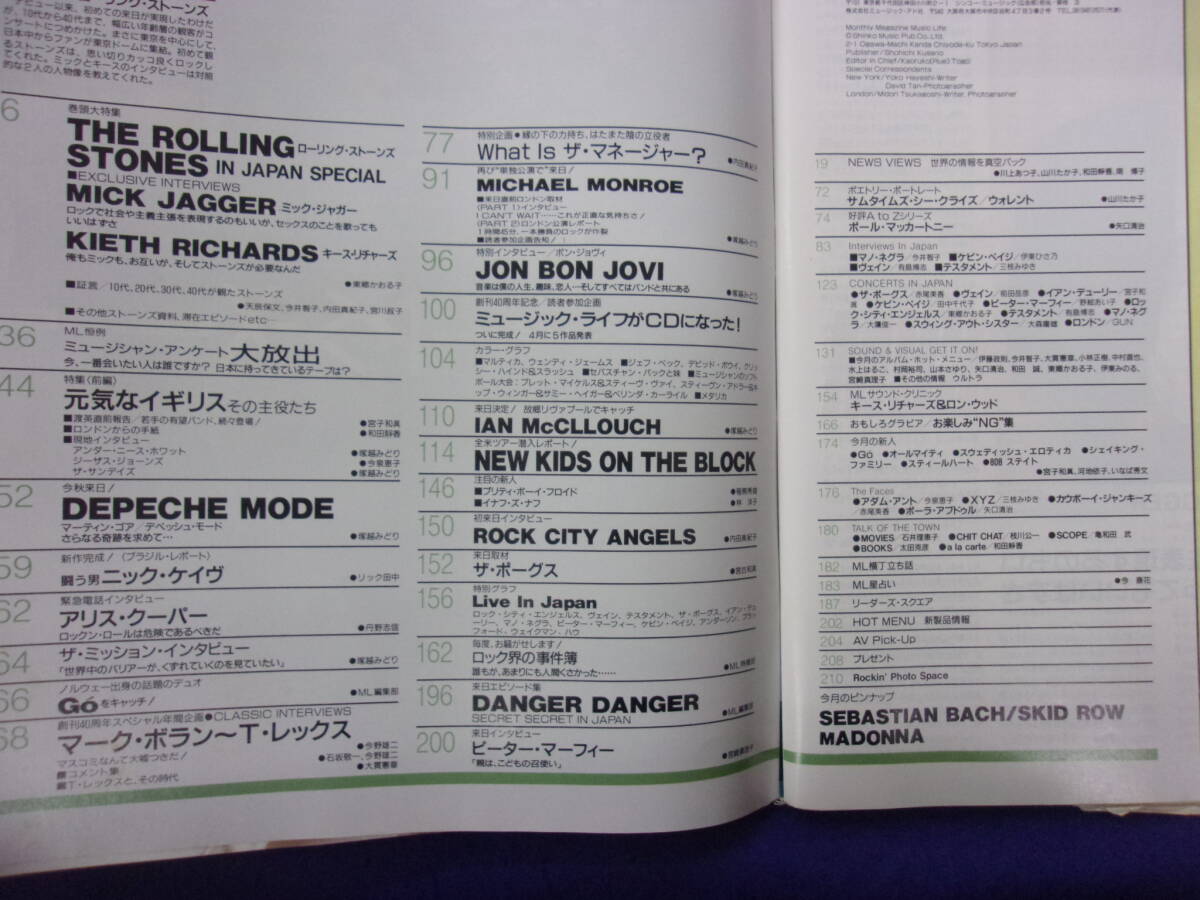 ーリング・ストーンズ
デビュー以来、初めての来日が実現したわけだ
が、10代から40代まで、幅広い年齢層の観客がコ
ンサートにつめかけた。まさに東京を中心にして、
日本中からファンが東京ドームに集結。初めて観
るストーンズは、思い切りカッコ良くロックし
てくれた。ミックとキースのインタビューは対照
的な2人の人物像を教えてくれた。
6
巻頭大特集
THE ROLLING ローリング・ストーンズ
STONES IN JAPAN SPECIAL
■EXCLUSIVE INTERVIEWS
MICK JAGGER ミック・ジャガー
ロックで社会や主義主張を表現するのもいいが、セックスのことを歌っても
いいはずさ
KIETH RICHARDS キース・リチャーズ
俺もミックも、お互いが、そしてストーンズが必要なんだ
●東郷かおる子
■証言/10代、20代、30代、40代が観たストーンズ
●天辰保文、今井智子、内田真紀子、宮川叔子
■その他ストーンズ資料、滞在エピソードetc…
36
ML恒例
ミュージシャン・アンケート大放出
今、一番会いたい人は誰ですか? 日本に持ってきているテープは?
44
特集(前編)
元気なイギリスその主役たち
■渡英直前報告/若手の有望バンド、続々登場! ●宮子和真
■ロンドンからの手紙 ●和田静香
■現地インタビュー
アンダー・ニース・ホワット ●塚越みどり
ジーザス・ジョーンズ ●今泉恵子
ザ・サンデイズ ●塚越みどり
52
今秋来日!
DEPECHE MODE
マーティン・ゴア/デペッシュ・モード
さらなる奇跡を求めて… ●塚越みどり
59
新作完成! (ブラジル・レポート)
闘う男ニック・ケイヴ ●リック田中
62
緊急電話インタビュー
アリス・クーパー
ロックン・ロールは危険であるべきだ ●丹野志信
64
ザ・ミッション・インタビュー
「世界中のバリアーが、くずれていくのを見ていたい」 ●塚越みどり
66
ノルウェー出身の話題のデュオ
Góをキャッチ! ●ML編集部
68
創刊40周年スペシャル年間企画●CLASSIC INTERVIEWS
マーク・ボラン〜T・レックス
マスコミなんて大嘘つきだ! ●今野雄二
■コメント集 ●石坂敬一、今野雄二
■T・レックスと、その時代 ●大貫憲章
77
特別企画●縁の下の力持ち、はたまた陰の立役者
What Is ザ・マネージャー? ●内田真紀子
91
再び“単独公演で”来日!
MICHAEL MONROE
■来日直前ロンドン取材
(PART 1)インタビュー
I CAN'T WAIT……これが正直な気持ちさ!
(PART 2)ロンドン公演レポート
1時間45分、一本勝負のロックが炸裂
■読者参加企画告知! ●塚越みどり
96
特別インタビュー/ボン・ジョヴィ
JON BON JOVI
音楽は僕の人生。趣味、恋人…そしてすべてはバンドと共にある
●塚越みどり
100
創刊40周年記念/読者参加企画
ミュージック・ライフがCDになった!
ついに完成! 4月に5作品発表
104
カラー・グラフ
■マルティカ、ウェンディ・ジェームス ■ジェフ・ベック、デビッド・ボウイ、クリッ
シー・ハインド&スラッシュ ■セバスチャン・バックと妹 ■ミュージシャンのソフト
ボール大会:ブレット・マイケルス&スティーヴ・ヴァイ、スティーヴン・アドラー&キ
ップ・ウィンガー&サミー・ヘイガー&ベリンダ・カーライル ■メタリカ
110
来日決定! 故郷リヴァプールでキャッチ
IAN McCLLOUCH ●塚越みどり
114
全米ツアー潜入レポート!
NEW KIDS ON THE BLOCK
146
注目の新人
■プリティ・ボーイ・フロイド
■イナフ・ズ・ナフ ●林 洋子
150
初来日インタビュー
ROCK CITY ANGELS ●内田真紀子
152
来日取材
ザ・ポーグス ●宮子和真
156
特別グラフ
Live In Japan
ロック・シティ・エンジェルス、ヴェイン、テスタメント、ザ・ポーグス、イアン・デュ
ーリー、マノ・ネグラ、ピーター・マーフィー、ケビン・ペイジ、アンダーソン、ブラッ
フォード、ウェイクマン、ハウ
162
毎度、お騒がせします!
ロック界の事件簿
誰もが、あまりにも人間くさかった…… ●ML特捜部
196
来日エピソード集
DANGER DANGER
SECRET SECRET IN JAPAN ●ML編集部
200
来日インタビュー
ピーター・マーフィー
「親は、こどもの召使い」
Monthly Magazine Music Life
©Shinko Music Pub.Co.Ltd.
2-1 Ogawa-Machi Kanda Chiyoda-Ku Tokyo Japan
Publisher/Shohichi Kusano
Editor in Chief/Kaoruko(Rue) Togo
Special Correspondents
New York/Yoko Hayashi-Writer
David Tan-Photographer
London/Midori Tsukagoshi-Writer, Photographer
19 NEWS VIEWS 世界の情報を真空パック
●川上あつ子、山川たか子、和田静香、南 博子
72 ポエトリー・ポートレート
サムタイムズ・シー・クライズ/ウォレント ●山川たか子
74 好評A to Zシリーズ
ポール・マッカートニー ●矢口清治
83 Interviews In Japan
■マノ・ネグラ/今井智子 ■ケビン・ペイジ/伊東ひさ乃
■ヴェイン/有島博志 ■テスタメント/三枝みゆき
123 CONCERTS IN JAPAN
●ザ・ポーグス/赤尾美香 ●ヴェイン/前田岳彦 ●イアン・デューリー/宮子和
真 ●ケビン・ペイジ/田中千代子 ●ピーター・マーフィー/野崎あい子 ●ロッ
ク・シティ・エンジェルス/東郷かおる子 ●テスタメント/有島博志 ●マノ・ネグ
ラ/大鷹俊一 ●スウィング・アウト・シスター/大森庸雄 ●ロンドン/GUN
131 SOUND & VISUAL GET IT ON!
■今月のアルバム・ホット・メニュー/伊藤政則、今井智子、大貫憲章、小林正樹、中村直也、
水上はるこ、村岡裕司、山本さゆり、矢口清治、和田 誠、東郷かおる子、伊東みのる、
宮崎真理子 ■その他の情報 ウルトラ
154 MLサウンド・クリニック
キース・リチャーズ&ロン・ウッド
166 おもしろグラビア/お楽しみ“NG”集
174 今月の新人
●Gó ●オールマイティ ●スウェディッシュ・エロティカ ●シェイキング・
ファミリー ●スティールハート ●808 ステイト
●宮子和真、河地依子、いなば秀文
176 The Faces
●アダム・アント/今泉恵子 ●XYZ/三枝みゆき ●カウボーイ・ジャンキーズ
/赤尾美香 ●ポーラ・アブドゥル/矢口清治
180 TALK OF THE TOWN
●MOVIES/石井理恵子 ●CHIT CHAT/枝川公一 ●SCOPE/亀和田 武
●BOOKS/太田克彦 ●a la carte/和田静香
182 ML横丁立ち話
183 ML星占い
187 リーダーズ・スクエア
202 HOT MENU 新製品情報
204 AV Pick-Up
208 プレゼント
210 Rockin' Photo Space
今月のピンナップ
SEBASTIAN BACH/SKID ROW
MADONNA